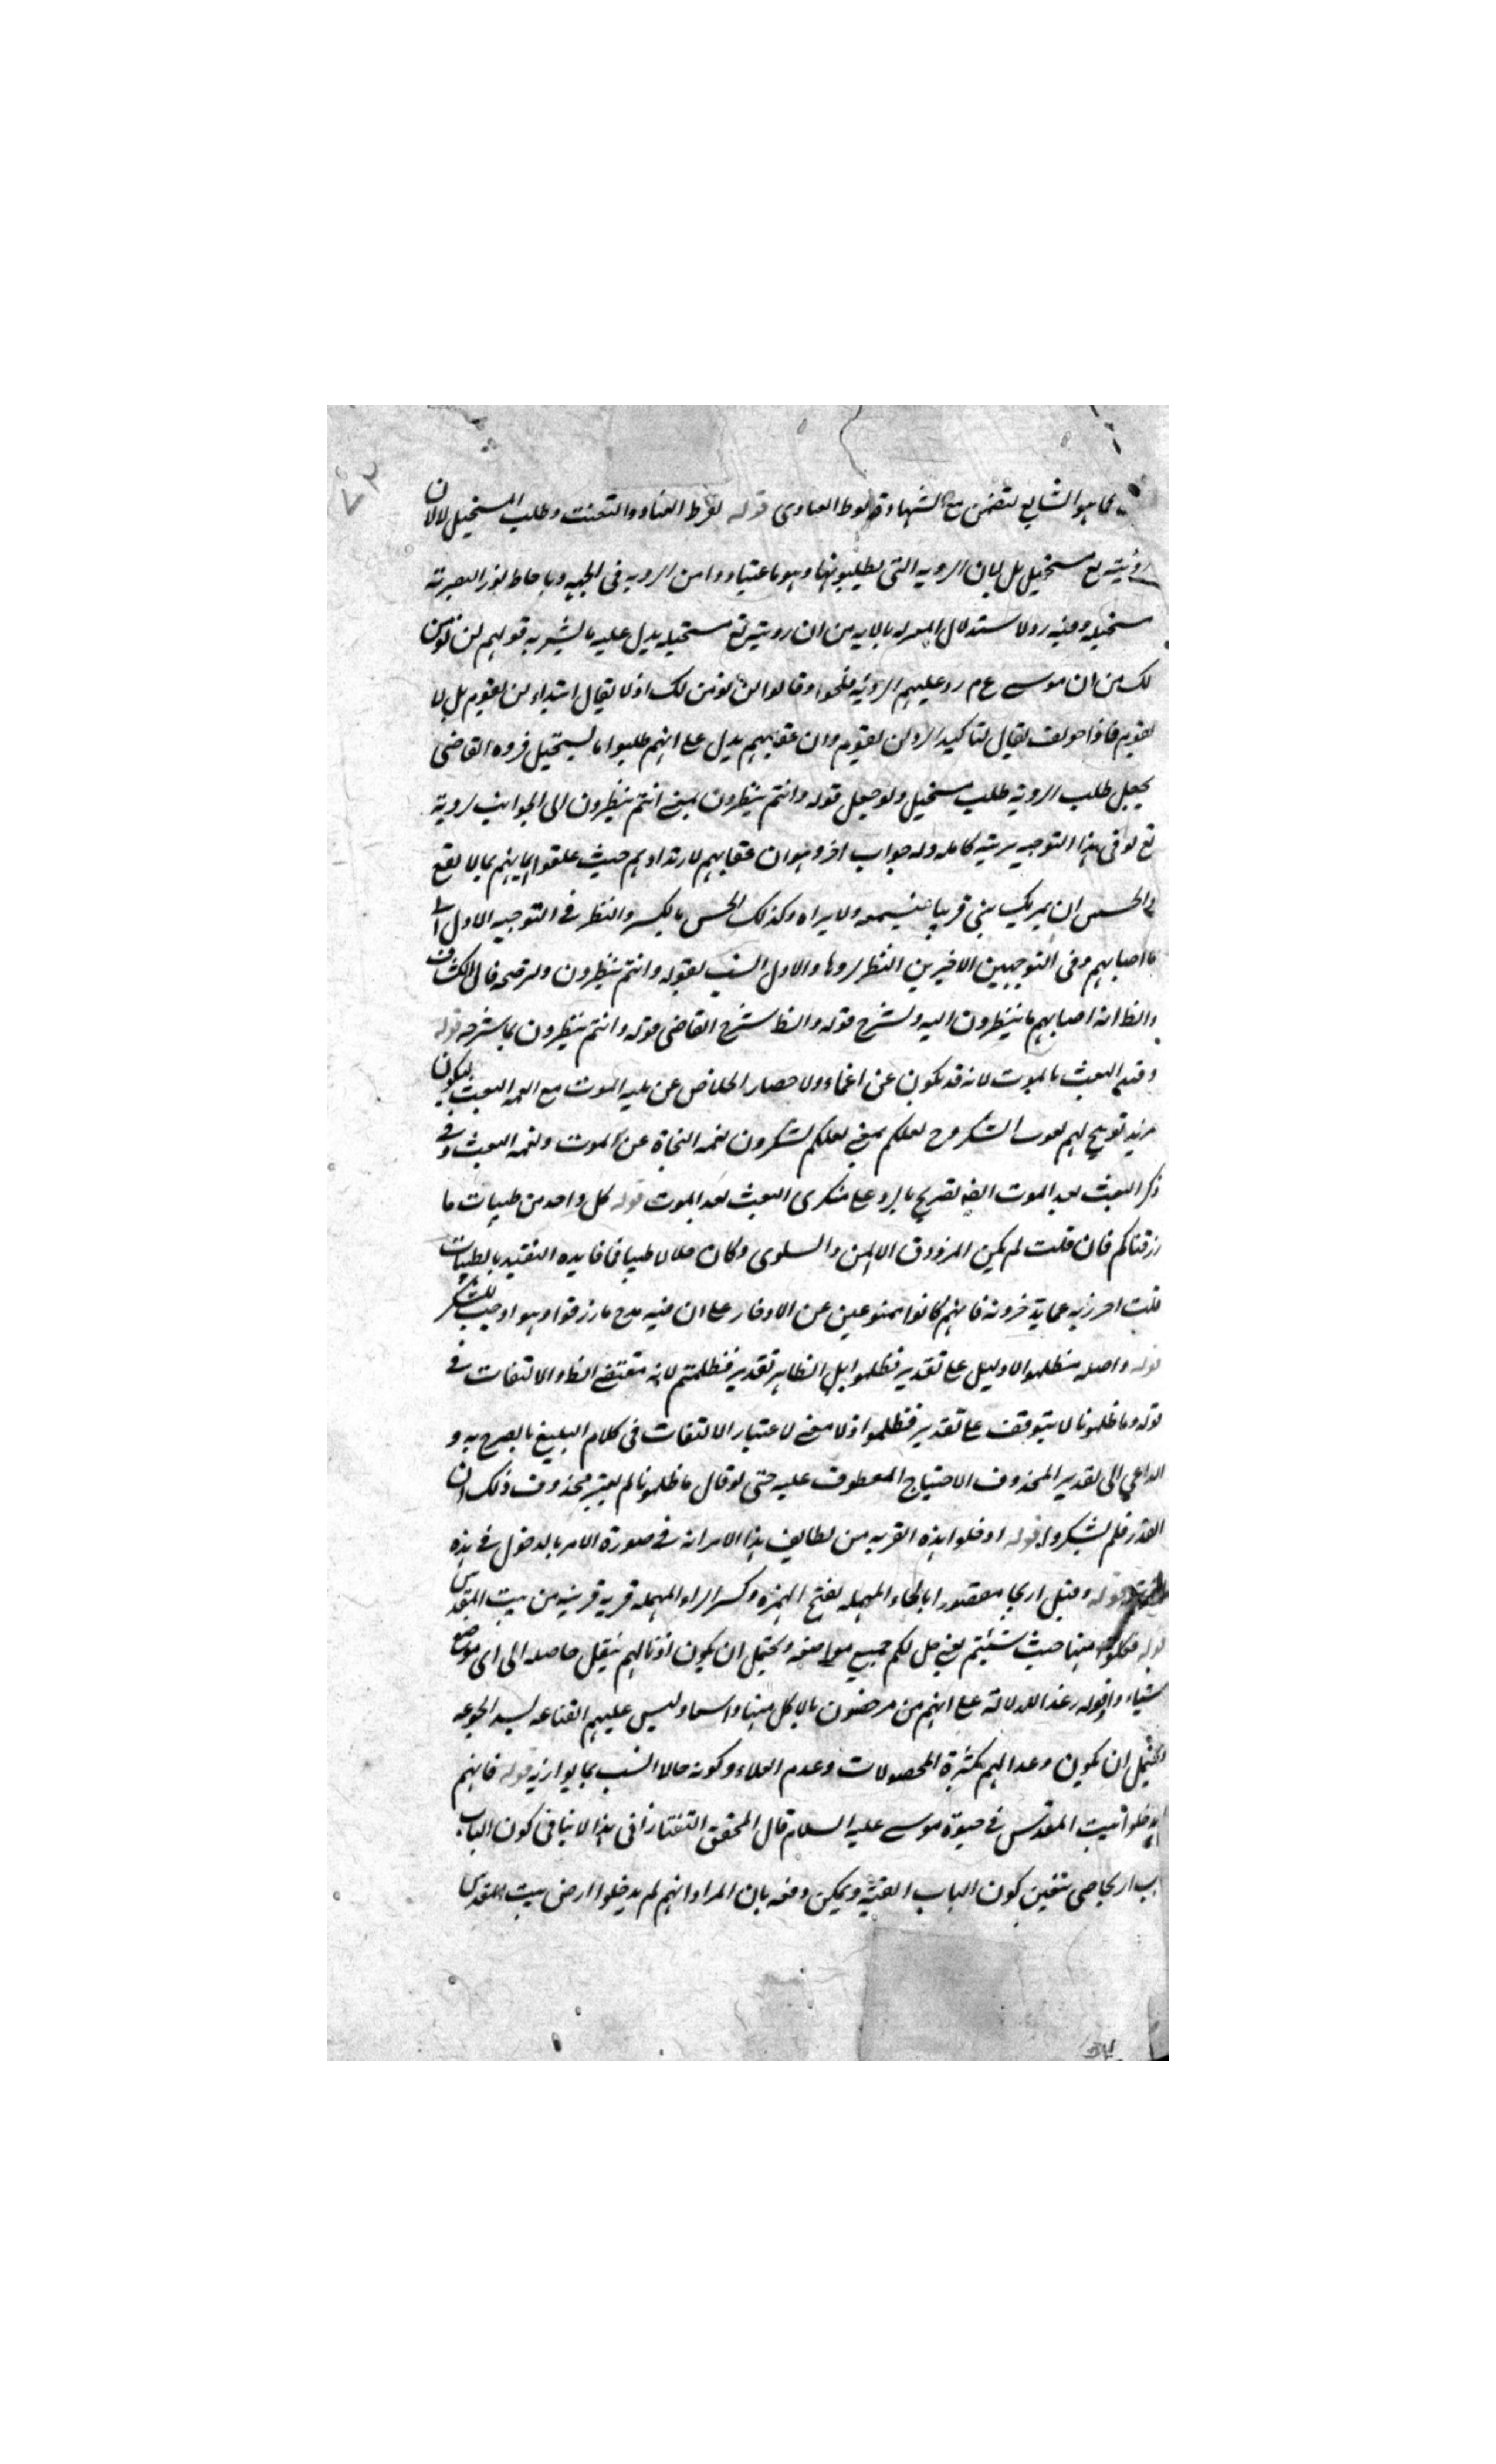 ٧٢
هو الشايع لتضمن مع الشهادة قوله لفرط العناد والتعنت وطلب المستحيل لا لان
رؤيته تع مستحيل بل لبيان الروية التى يطلبونها وهو ما اعتاد وامن الروية فى الجهة وباحاطة نور البصر به
مستحيله وفيه رد لاستدلال المعتزله بالايه من ان رويته تع مستحيله يدل عليه ما يشير به قولهم لن نؤمن
لك من ان موسے ع م رد عليهم الروية فلحوا وقالوا لن نؤمن لك اذ لا يقال ابتداء لن يقوم بل لا
يقوم فاذا خولف يقال لتاكيد الرد لن يقوم وان عقابهم يدل على انهم طلبوا ما يستحيل فرده القاضى
بجعل طلب الروية طلب مستحيل ولو جعل قوله وانتم تنظرون بمعنى انتم تنظرون الى الجوانب لروية
تع لوفى هذا التوجيه بتمة كامله وله جواب اخر وهو ان عقابهم لارتدادهم حيث علقوا ايمانهم بما لا يقع
والحسس ان يمر بك شئ قريبا فتسمعه ولا تراه وكذلك الحس بالكسر والنظر فے التوجيه الاول الى
ما اصابهم وفى التوجيهين الاخيرين النظر لروها والاول انسب بقوله وانتم تنظرون ولترجحه قال الكشاف
والظ انه اصابهم ما ينظرون اليه ولشرح قوله والظ شرح القاضى قوله وانتم تنظرون بما شرحه قوله
وقيد البعث بالموت لانه قد يكون عن اغماء ولاحضار الخلاص عن بليه الموت مع نعمه البعث ليكون
مزيد توبيخ لهم لفوت الشكر وح لعلكم بمعنى لعلكم تشكرون نعمه النجاة عن الموت ونعمه البعث وفے
ذكر البعث بعد الموت ايضا تصريح بالرد على منكرى البعث بعد الموت قوله كل واحد من طيبات ما
رزقناكم فان قلت لم يكن المرزوق الا المن والسلوى وكان حلالا طيبا فما فايده التقييد بالطيبات
قلت احترز به عما يدخرونه فانهم كانوا ممنوعين عن الادخار على ان فيه مدح ما رزقوا وهو اوجب للشكر
قوله واصله فظلموا لا دليل على تقدير فظلموا بل الظاهر تقدير فظلمتم لانه مقتضى الظ والالتفات فے
قوله وما ظلمونا لا يتوقف على تقدير فظلموا اذ لا معنى لاعتبار الالتفات فى كلام البليغ ما يصرح به و
الداعي الى تقدير المحذوف الاحتياج المعطوف عليه حتى لو قال ما ظلمونا لم يعتبر محذوف ذلك ان
القدر فلم يشكروا قوله ادخلوا هذه القريه من لطايف هذا الامر انه فے صورة الامر بالدخول فے هذه
قوله وقيل اريحا مقصورا بالحاء المهمله بفتح الهمزه وكسر الراء المهمله قرية قريبه من بيت المقدس
قوله فكلوا منها حيث شئتم يعنى حل لكم جميع مواضعه ويحتمل ان يكون اذنا لهم بنقل حاصله الى اى موضع
شياء واقوله رغدا للدلالة على انهم من مرخصون بالاكل منها واسعا وليس عليهم القناعه لسد الجوعه
ويحتمل ان يكون وعدا لهم بكثرة المحصولات وعدم الغلاء وكونه حالا انسب بما يوازنه قوله فانهم
لم يدخلوا بيت المقدس فے حيوة موسے عليه السلام قال المحقق التفتازانى هذا لا ينافى كون الباب
باب اريحا حتى يتعين كون الباب القبة ويمكن دفعه بان المراد انهم لم يدخلوا ارض بيت المقدس